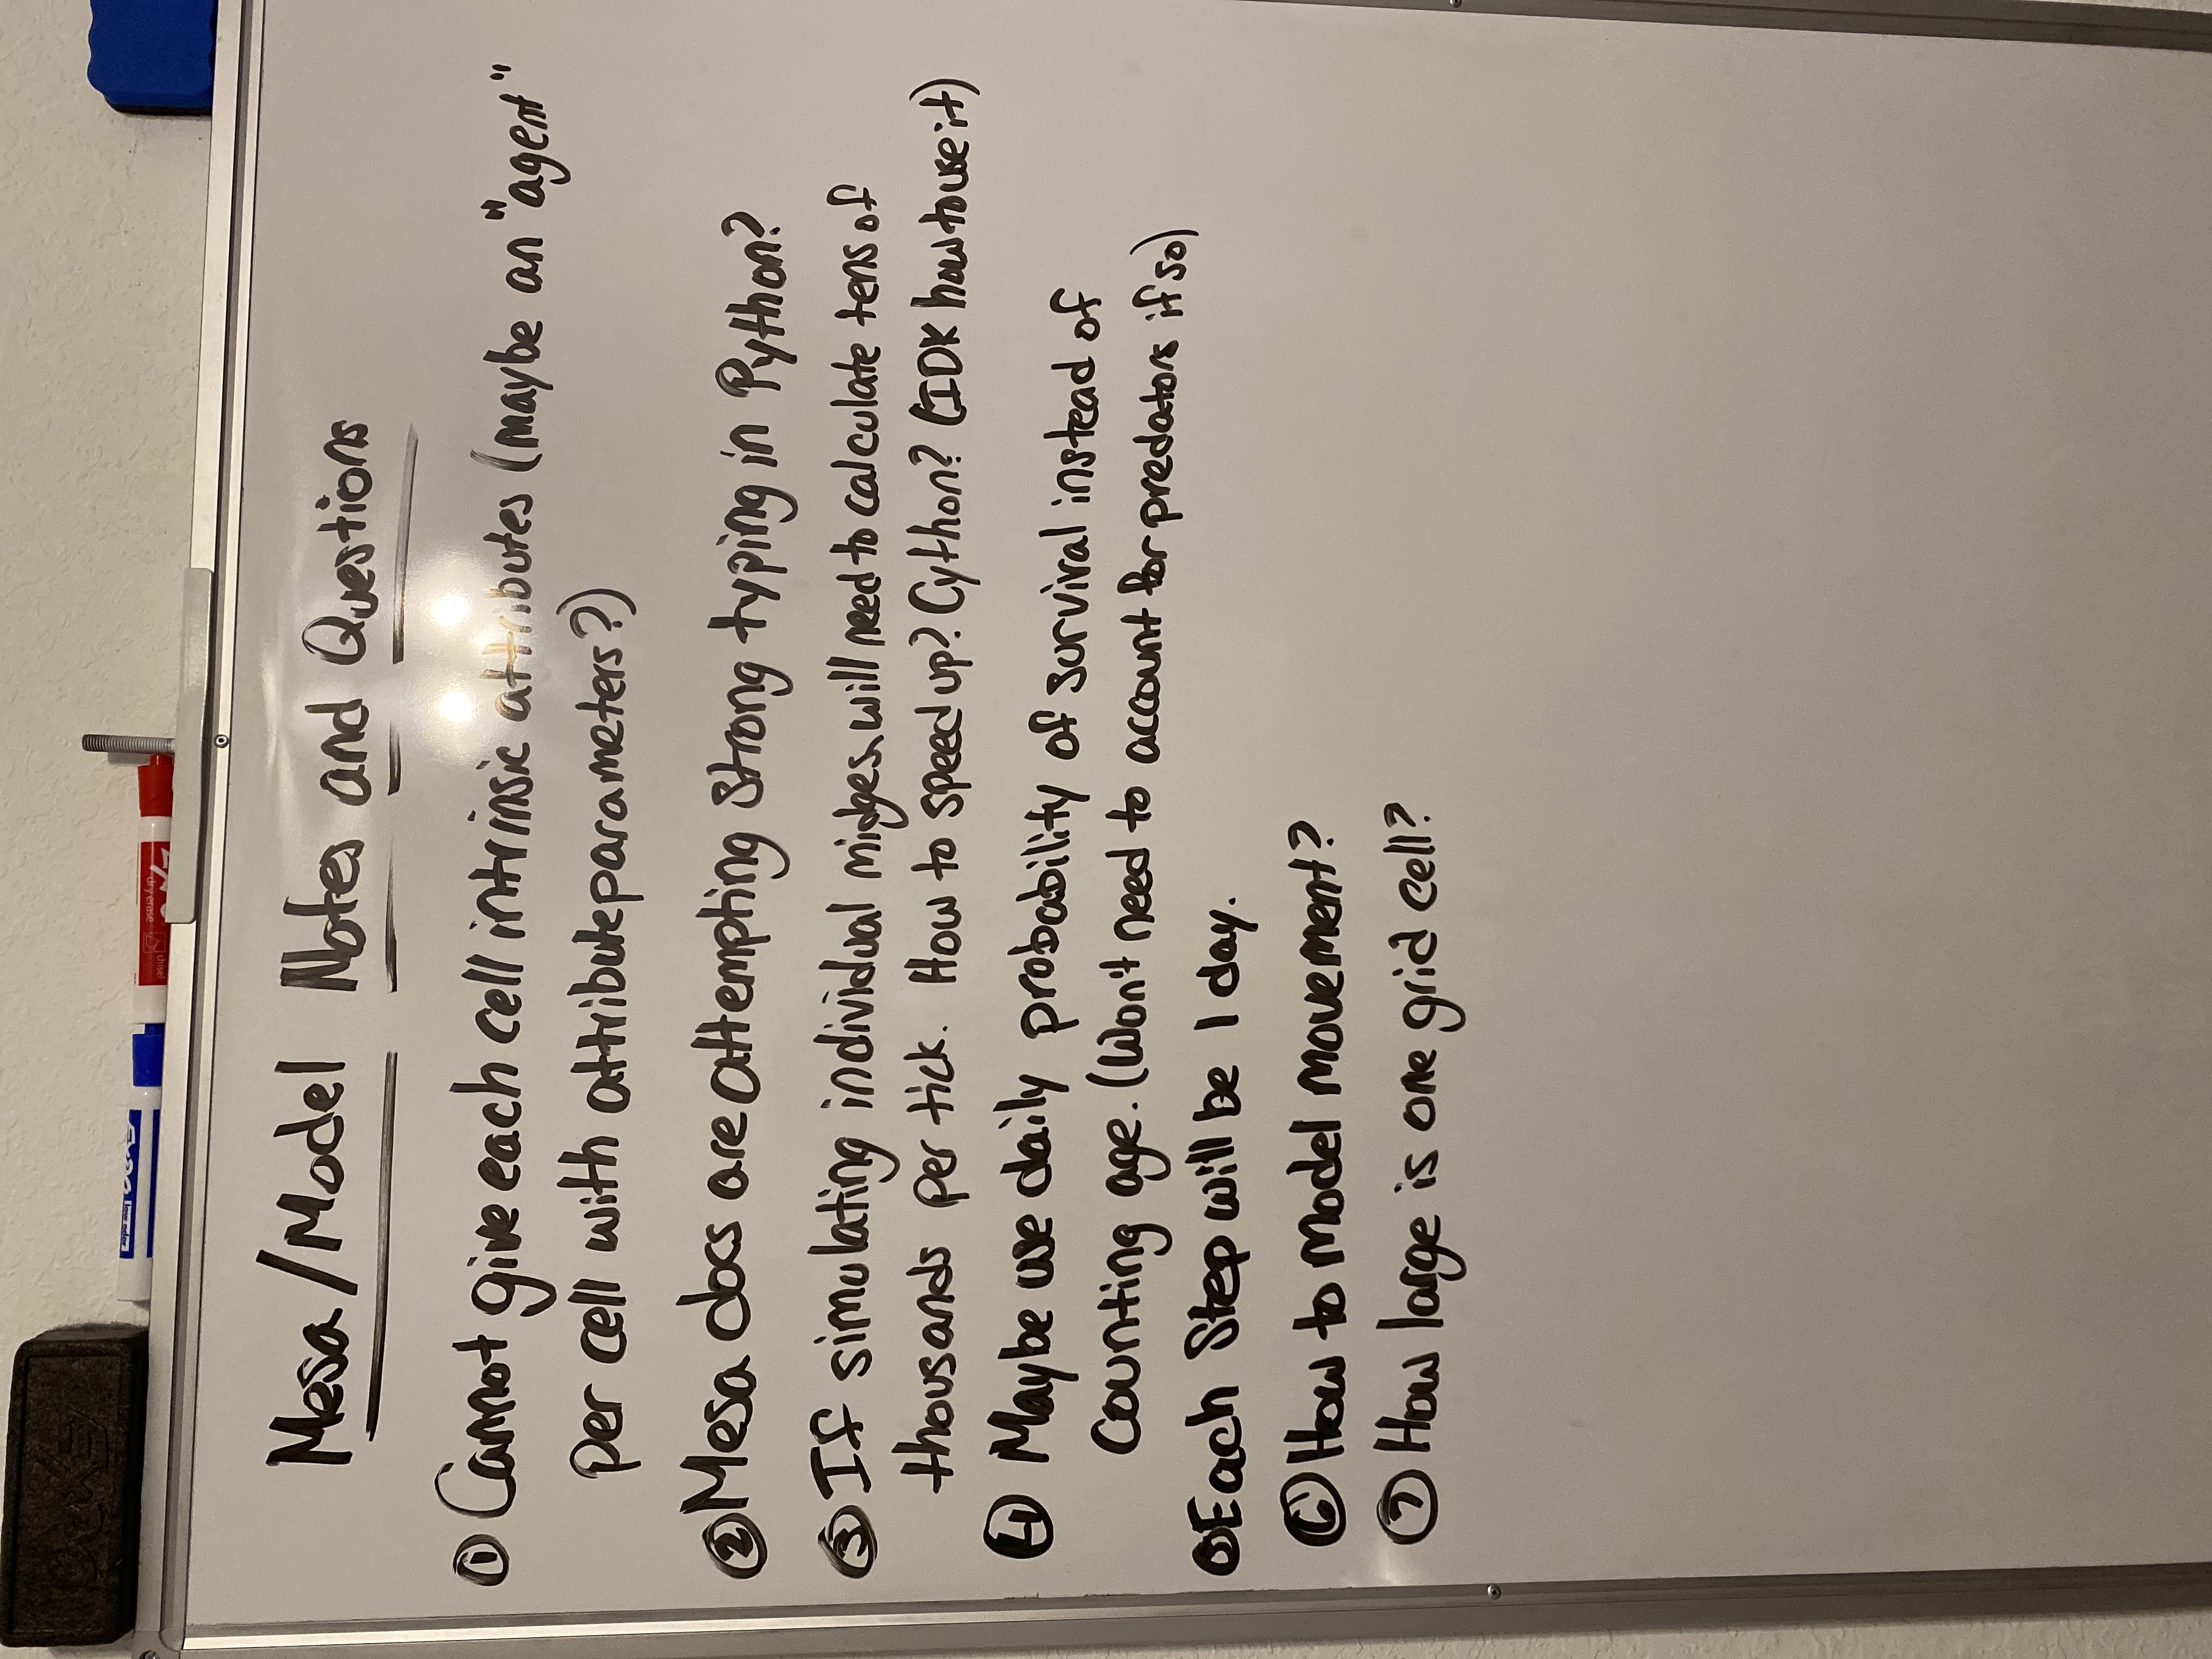 Quixey
low odor EXPO
chisel dry erase EXPO
Mesa/Model Notes and Questions
① Cannot give each cell intrinsic attributes (maybe an "agent"
per cell with attribute parameters?)
② Mesa docs are attempting strong typing in Python?
③ If simulating individual midges, will need to calculate tens of
thousands per tick. How to speed up? Cython? (IDK how to use it)
④ Maybe use daily probability of survival instead of
counting age. (Won't need to account for predators if so)
⑤ Each Step will be 1 day.
⑥ How to Model movement?
⑦ How large is one grid cell?